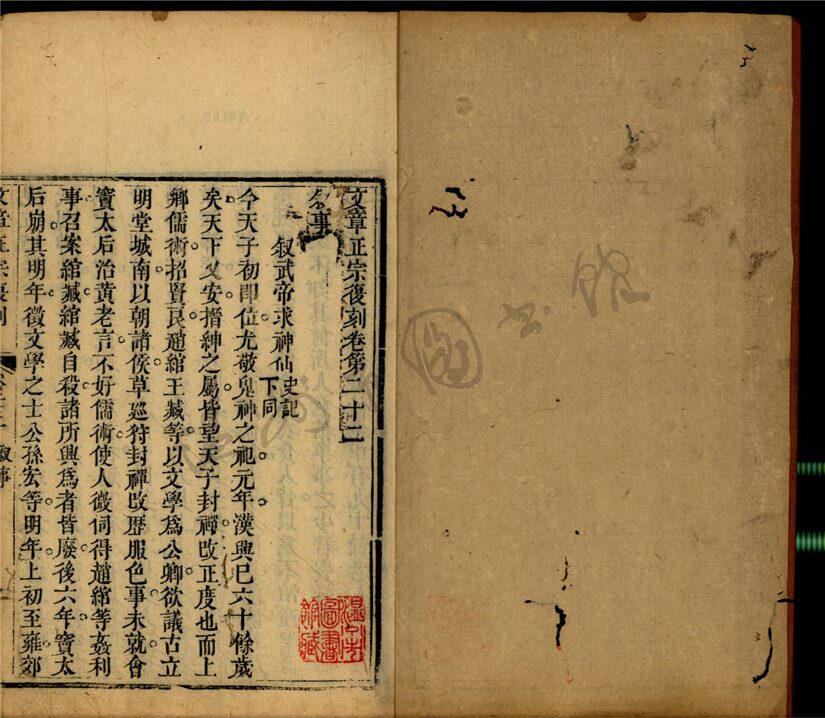 文章正宗復刻卷第二十二
敘事
叙武帝求神仙史記下同
今天子初即位尤敬鬼神之祀元年漢興已六十餘歲
矣天下乂安搢紳之屬皆望天子封禪改正度也而上
鄉儒術招賢良趙綰王臧等以文學爲公卿欲議古立
明堂城南以朝諸侯草巡狩封禪改歷服色事未就會
竇太后治黃老言不好儒術使人微伺得趙綰等姦利
事召案綰臧綰臧自殺諸所興爲者皆廢後六年竇太
后崩其明年徵文學之士公孫宏等明年上初至雍郊
文章正宗復刻
叙事
圖書
館藏